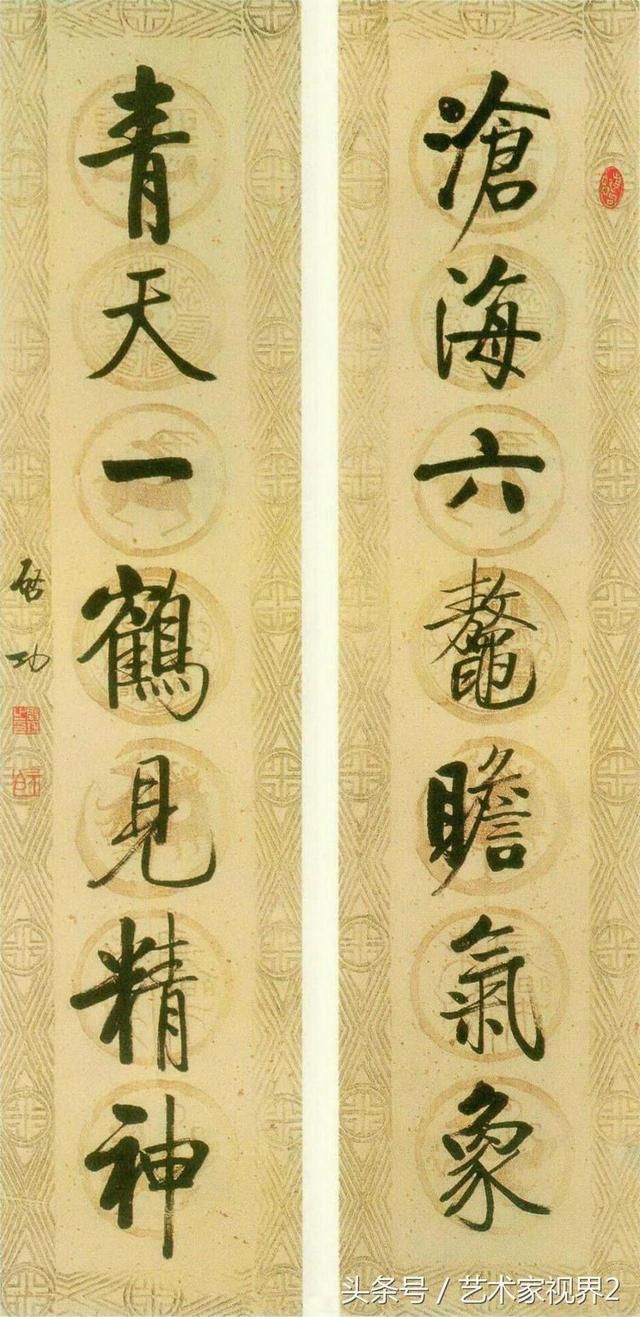 滄海六鼇瞻氣象
青天一鶴見精神
啓功
头条号 / 艺术家视界2